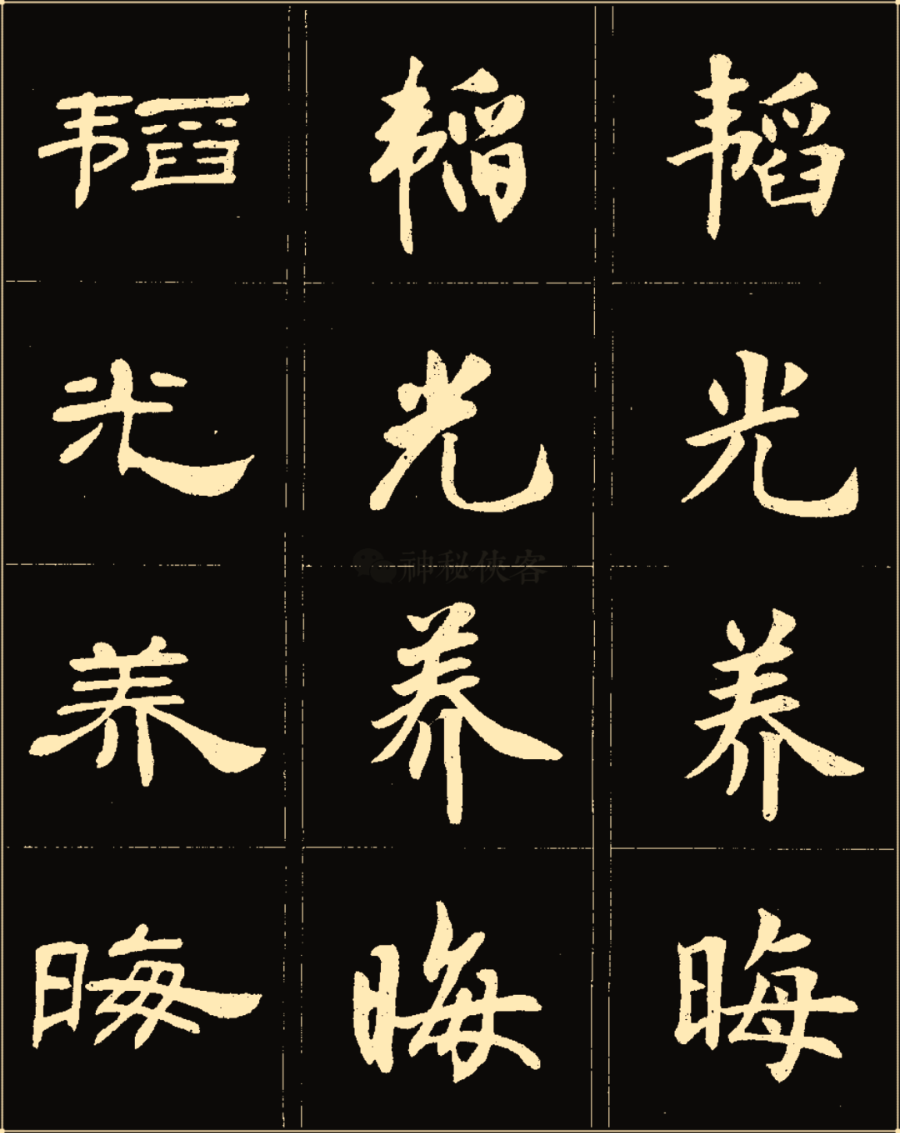 韬 韬 韬
光 光 光
神秘侠客
养 养 养
晦 晦 晦